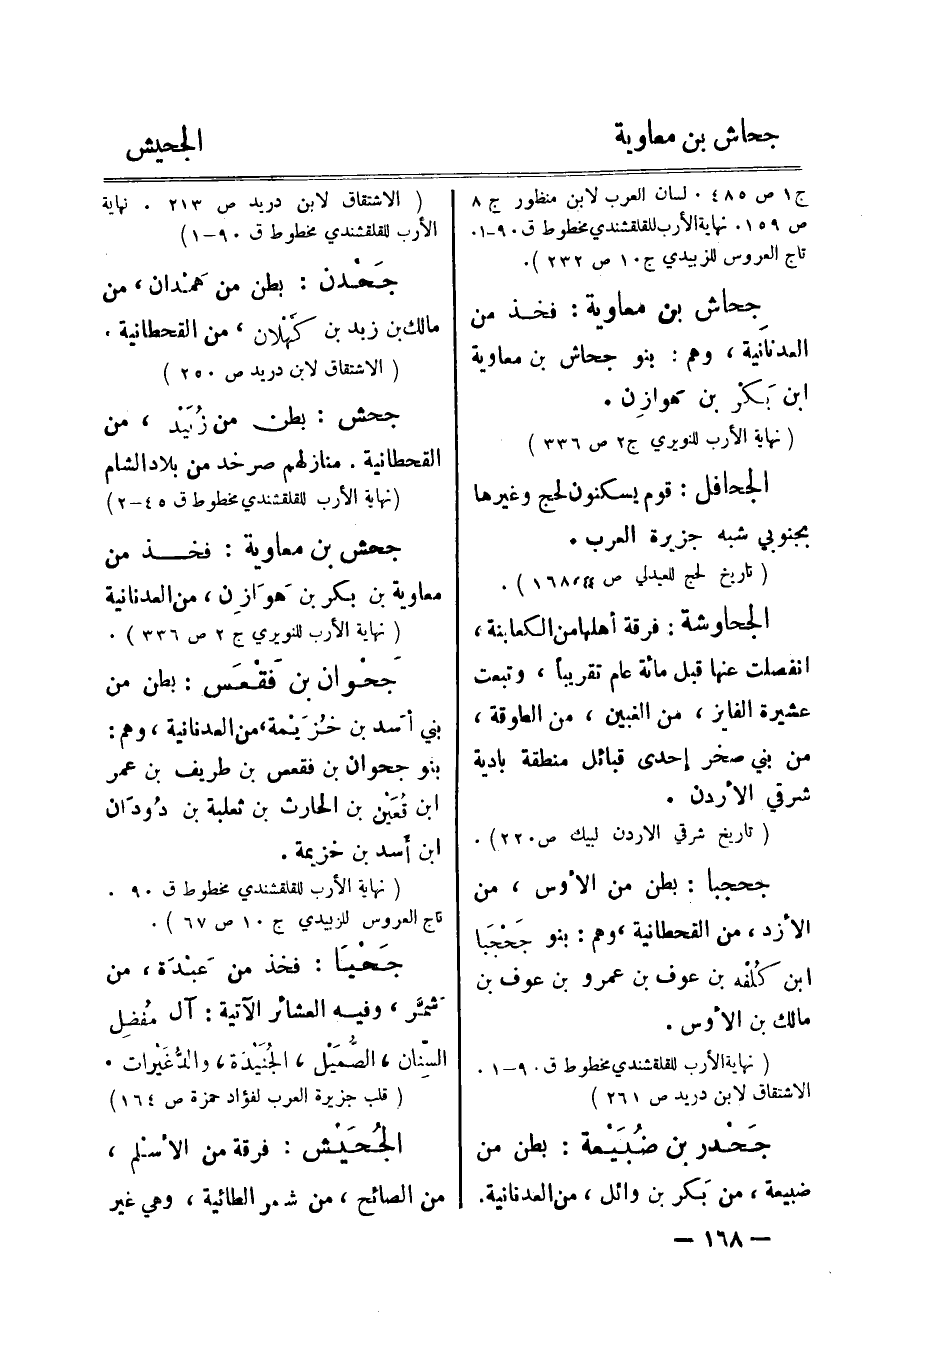 جحاش بن معاوية
الجحيش
ج١ ص ٤٨٥ . لسان العرب لابن منظور ج ٨
ص ١٥٩. نهاية الأرب للقلقشندي مخطوط ق ٩٠-١.
تاج العروس للزبيدي ج ١٠ ص ٢٣٢ ).
جِحاش بن معاوية : فخذ من
العدنانية ، وهم : بنو جحاش بن معاوية
ابن بَكْر بن هوازن .
( نهاية الأرب للنويري ج٢ ص ٣٣٦ )
الجحافل : قوم يسكنون لحج وغيرها
بجنوبي شبه جزيرة العرب .
( تاريخ لحج للعبدلي ص ٤٤، ١٦٨ ) .
الجحاوشة : فرقة أهلها من الكعابنة ،
انفصلت عنها قبل مائة عام تقريباً ، وتبعت
عشيرة الفايز ، من الغبين ، من الطوقة ،
من بني صخر إحدى قبائل منطقة بادية
شرقي الأردن .
( تاريخ شرقي الاردن لبيك ص ٢٢٠ ) .
جحجبا : بطن من الأوس ، من
الأزد ، من القحطانية ، وهم : بنو جَحْجَبَا
ابن كُلْفه بن عوف بن عمرو بن عوف بن
مالك بن الأوس .
( نهاية الأرب للقلقشندي مخطوط ق ٩٠-١ .
الاشتقاق لابن دريد ص ٢٦١ )
جَحْدر بن ضُبَيْعة : بطن من
ضبيعة ، من بَكر بن وائل ، من العدنانية.
( الاشتقاق لابن دريد ص ٢١٣ . نهاية
الأرب للقلقشندي مخطوط ق ٩٠-١)
جَحْدن : بطن من همْدان ، من
مالك بن زيد بن كَهْلان ، من القحطانية .
( الاشتقاق لابن دريد ص ٢٥٠ )
جحش : بطن من زُبَيْد ، من
القحطانية . منازلهم صرخد من بلاد الشام
(نهاية الأرب للقلقشندي مخطوط ق ٤٥-٢)
جحش بن معاوية : فخذ من
معاوية بن بكر بن هَوَازِن ، من العدنانية
( نهاية الأرب للنويري ج ٢ ص ٣٣٦ ) .
جَحْوان بن فَقْعَس : بطن من
بني أَسد بن خُزَيْمة ، من العدنانية ، وهم :
بنو جحوان بن فقعس بن طريف بن عمر
ابن قُعَيْن بن الحارث بن ثعلبة بن دُودَان
ابن أَسد بن خزيمة .
( نهاية الأرب للقلقشندي مخطوط ق ٩٠ .
تاج العروس للزبيدي ج ١٠ ص ٦٧ ) .
جَحْيَا : فخذ من عَبْدَة ، من
شمَّر ، وفيه العشائر الآتية : آل مُفضِل
السِّنان ، الصُّمَيْل ، الجُنَيْدَة ، والدُّغَيْرات .
( قلب جزيرة العرب لفؤاد حمزة ص ١٦٤)
الجُحَيْش : فرقة من الأسْلم ،
من الصائح ، من شمر الطائية ، وهي غير
— ١٦٨ —